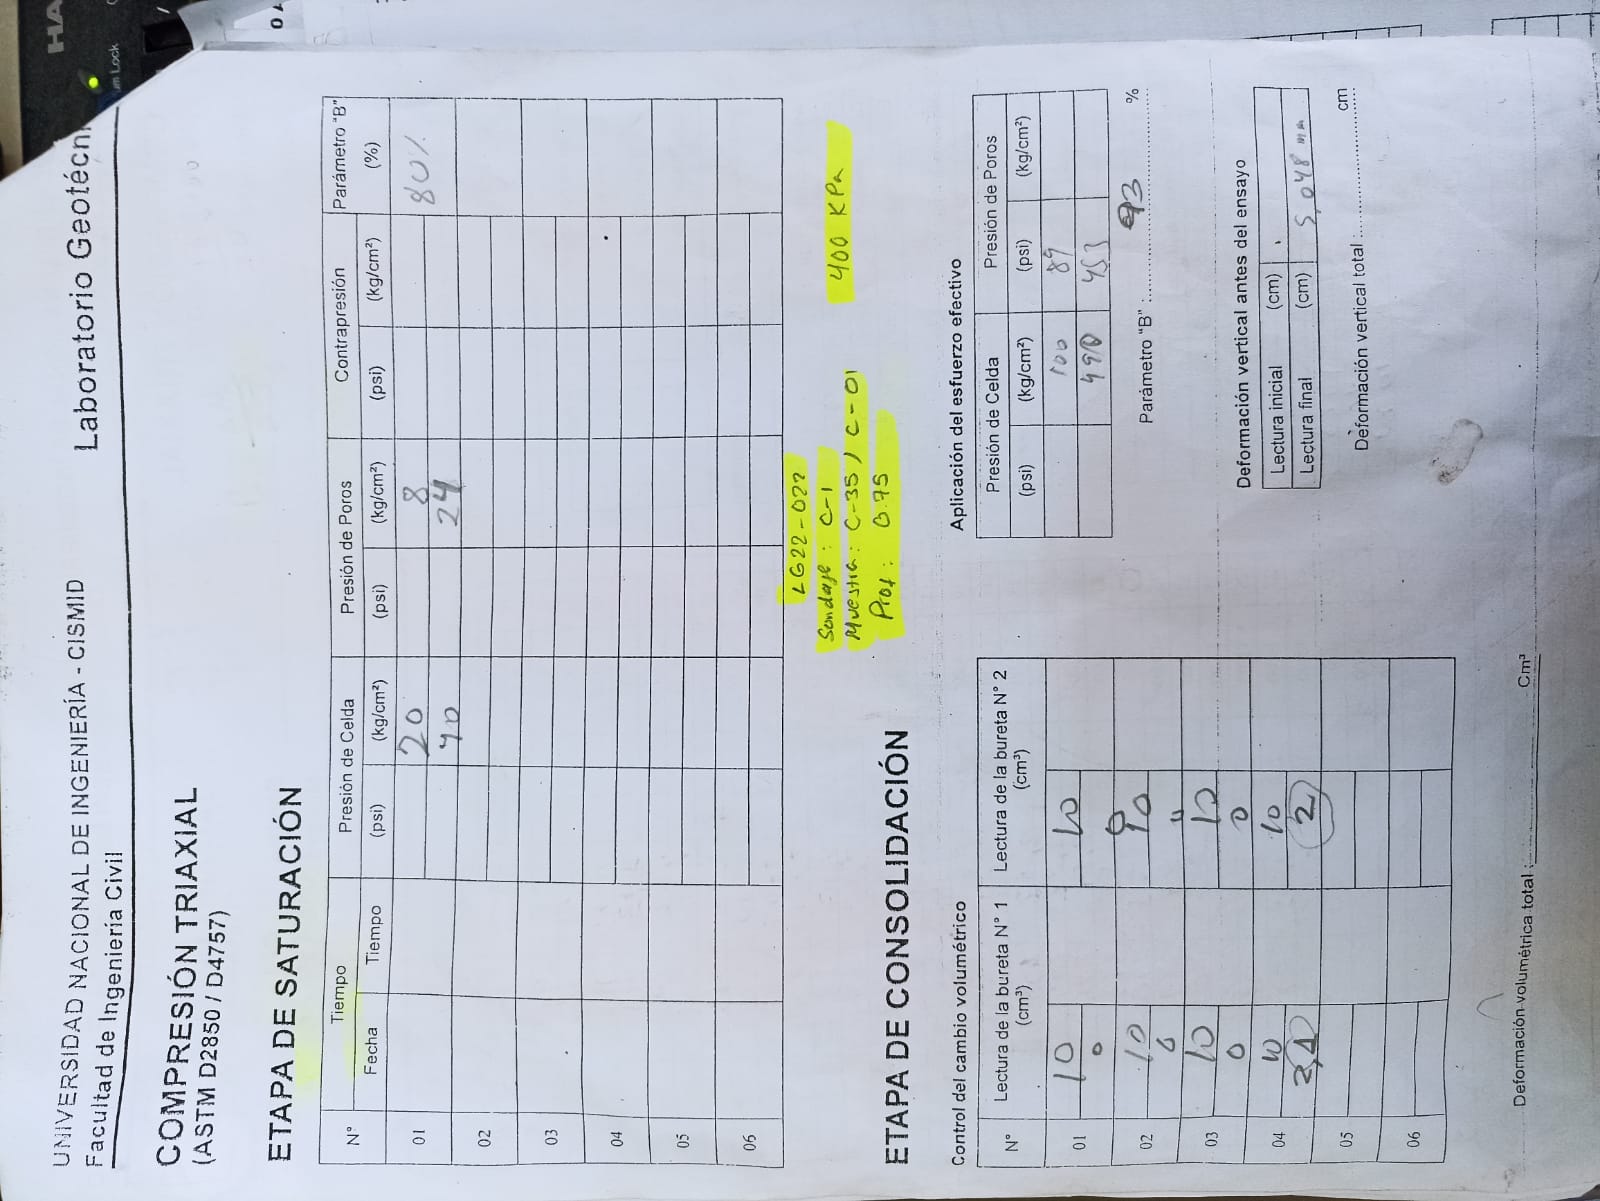 UNIVERSIDAD NACIONAL DE INGENIERÍA - CISMID
Facultad de Ingeniería Civil
Laboratorio Geotécni
COMPRESIÓN TRIAXIAL
(ASTM D2850 / D4757)
ETAPA DE SATURACIÓN
N° Tiempo Presión de Celda Presión de Poros Contrapresión Parámetro "B"
Fecha Tiempo (psi) (kg/cm²) (psi) (kg/cm²) (psi) (kg/cm²) (%)
01 20 8 80%
40 24
02
03
04
05
06
LG22-022
Sondaje: C-1
Muestra: C-35 / C-01
Prof: 0.75
400 KPa
ETAPA DE CONSOLIDACIÓN
Control del cambio volumétrico
N° Lectura de la bureta N° 1 (cm³) Lectura de la bureta N° 2 (cm³)
01 10 10
0 0
02 10 10
0 0
03 10 10
0 0
04 10 10
2
05
06
Deformación volumétrica total : Cm³
Aplicación del esfuerzo efectivo
Presión de Celda Presión de Poros
(psi) (kg/cm²) (psi) (kg/cm²)
100 89
490 453
Parámetro "B" : 93 %
Deformación vertical antes del ensayo
Lectura inicial (cm)
Lectura final (cm) 5,048 mm
Deformación vertical total : cm
HA
um Lock